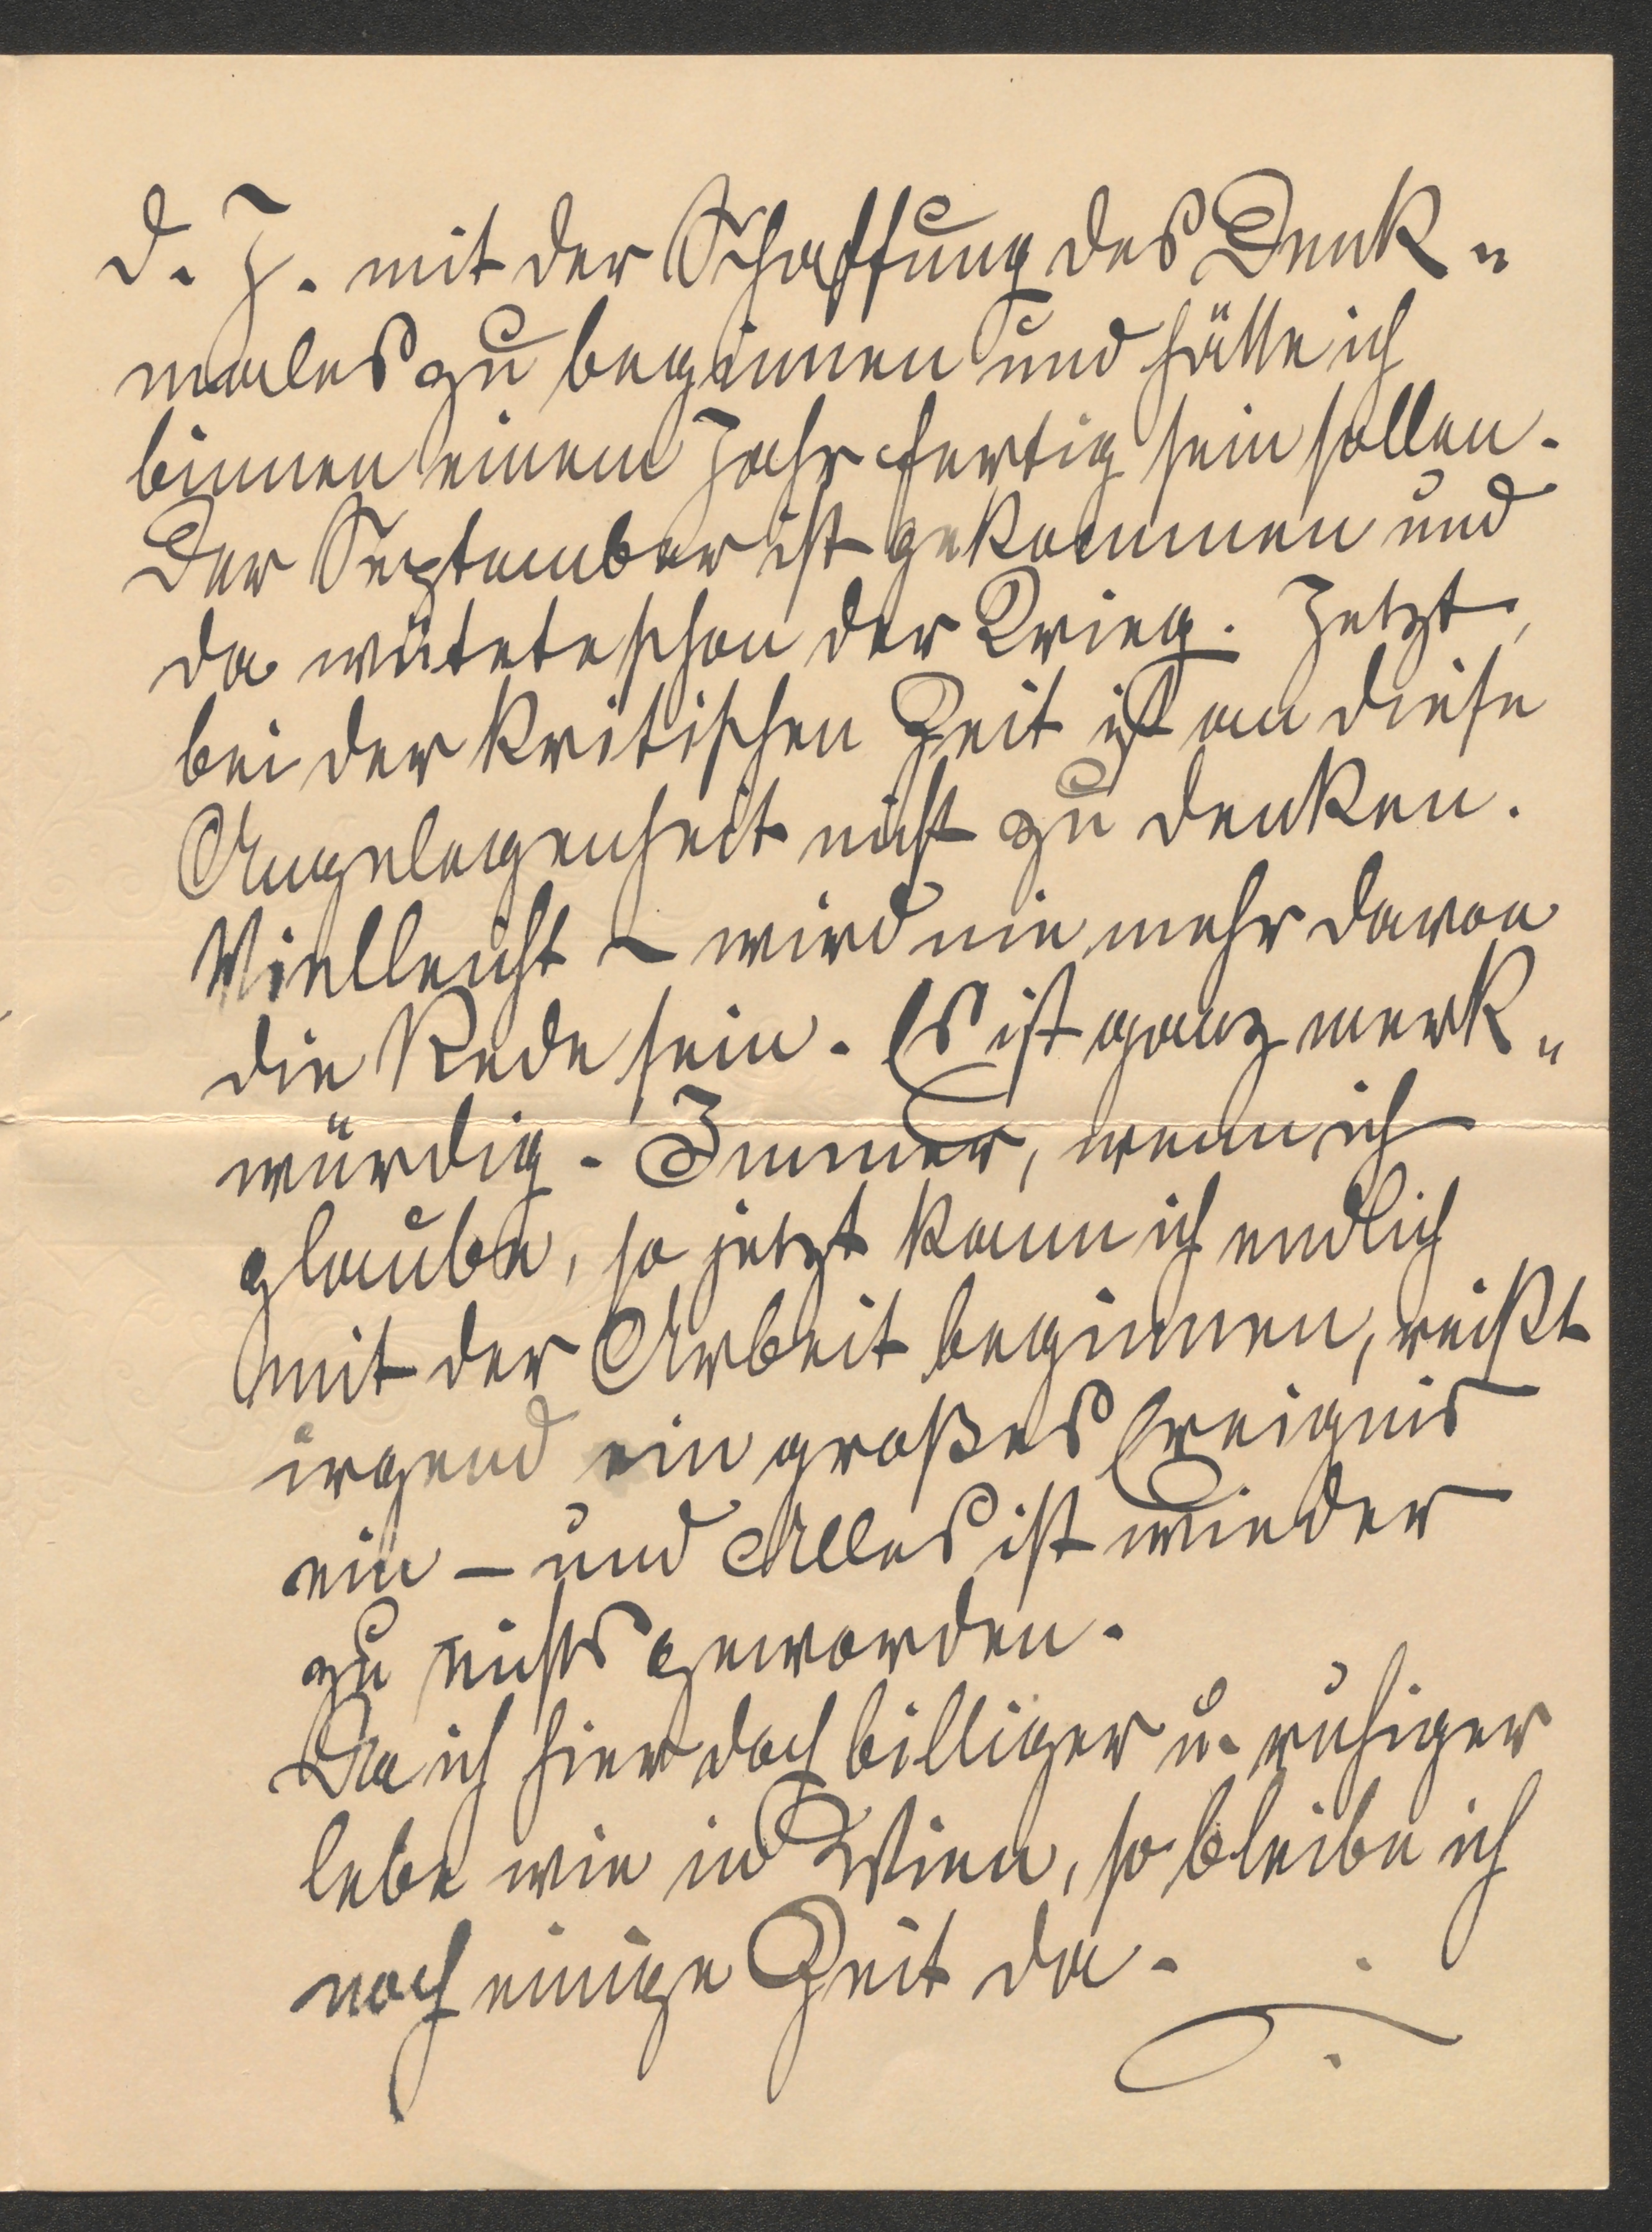 d. J. mit der Schaffung des Denk„
males zu beginnen und hätte ich
binnen einem Jahr fertig sein sollen.
Der September ist gekommen und
da wütete schon der Krieg. Jetzt,
bei der kritischen Zeit ist an diese
Angelegenheit nicht zu denken.
Vielleicht – wird nie mehr davon
die Rede sein. Es ist ganz merk„
würdig. Immer, wenn ich
glaube, so jetzt kann ich endlich
mit der Arbeit beginnen, reißt
irgend ein großes Ereignis
ein – und Alles ist wieder
zu nichts geworden.
Da ich hier doch billiger u. ruhiger
lebe wie in Wien, so bleibe ich
noch einige Zeit da.